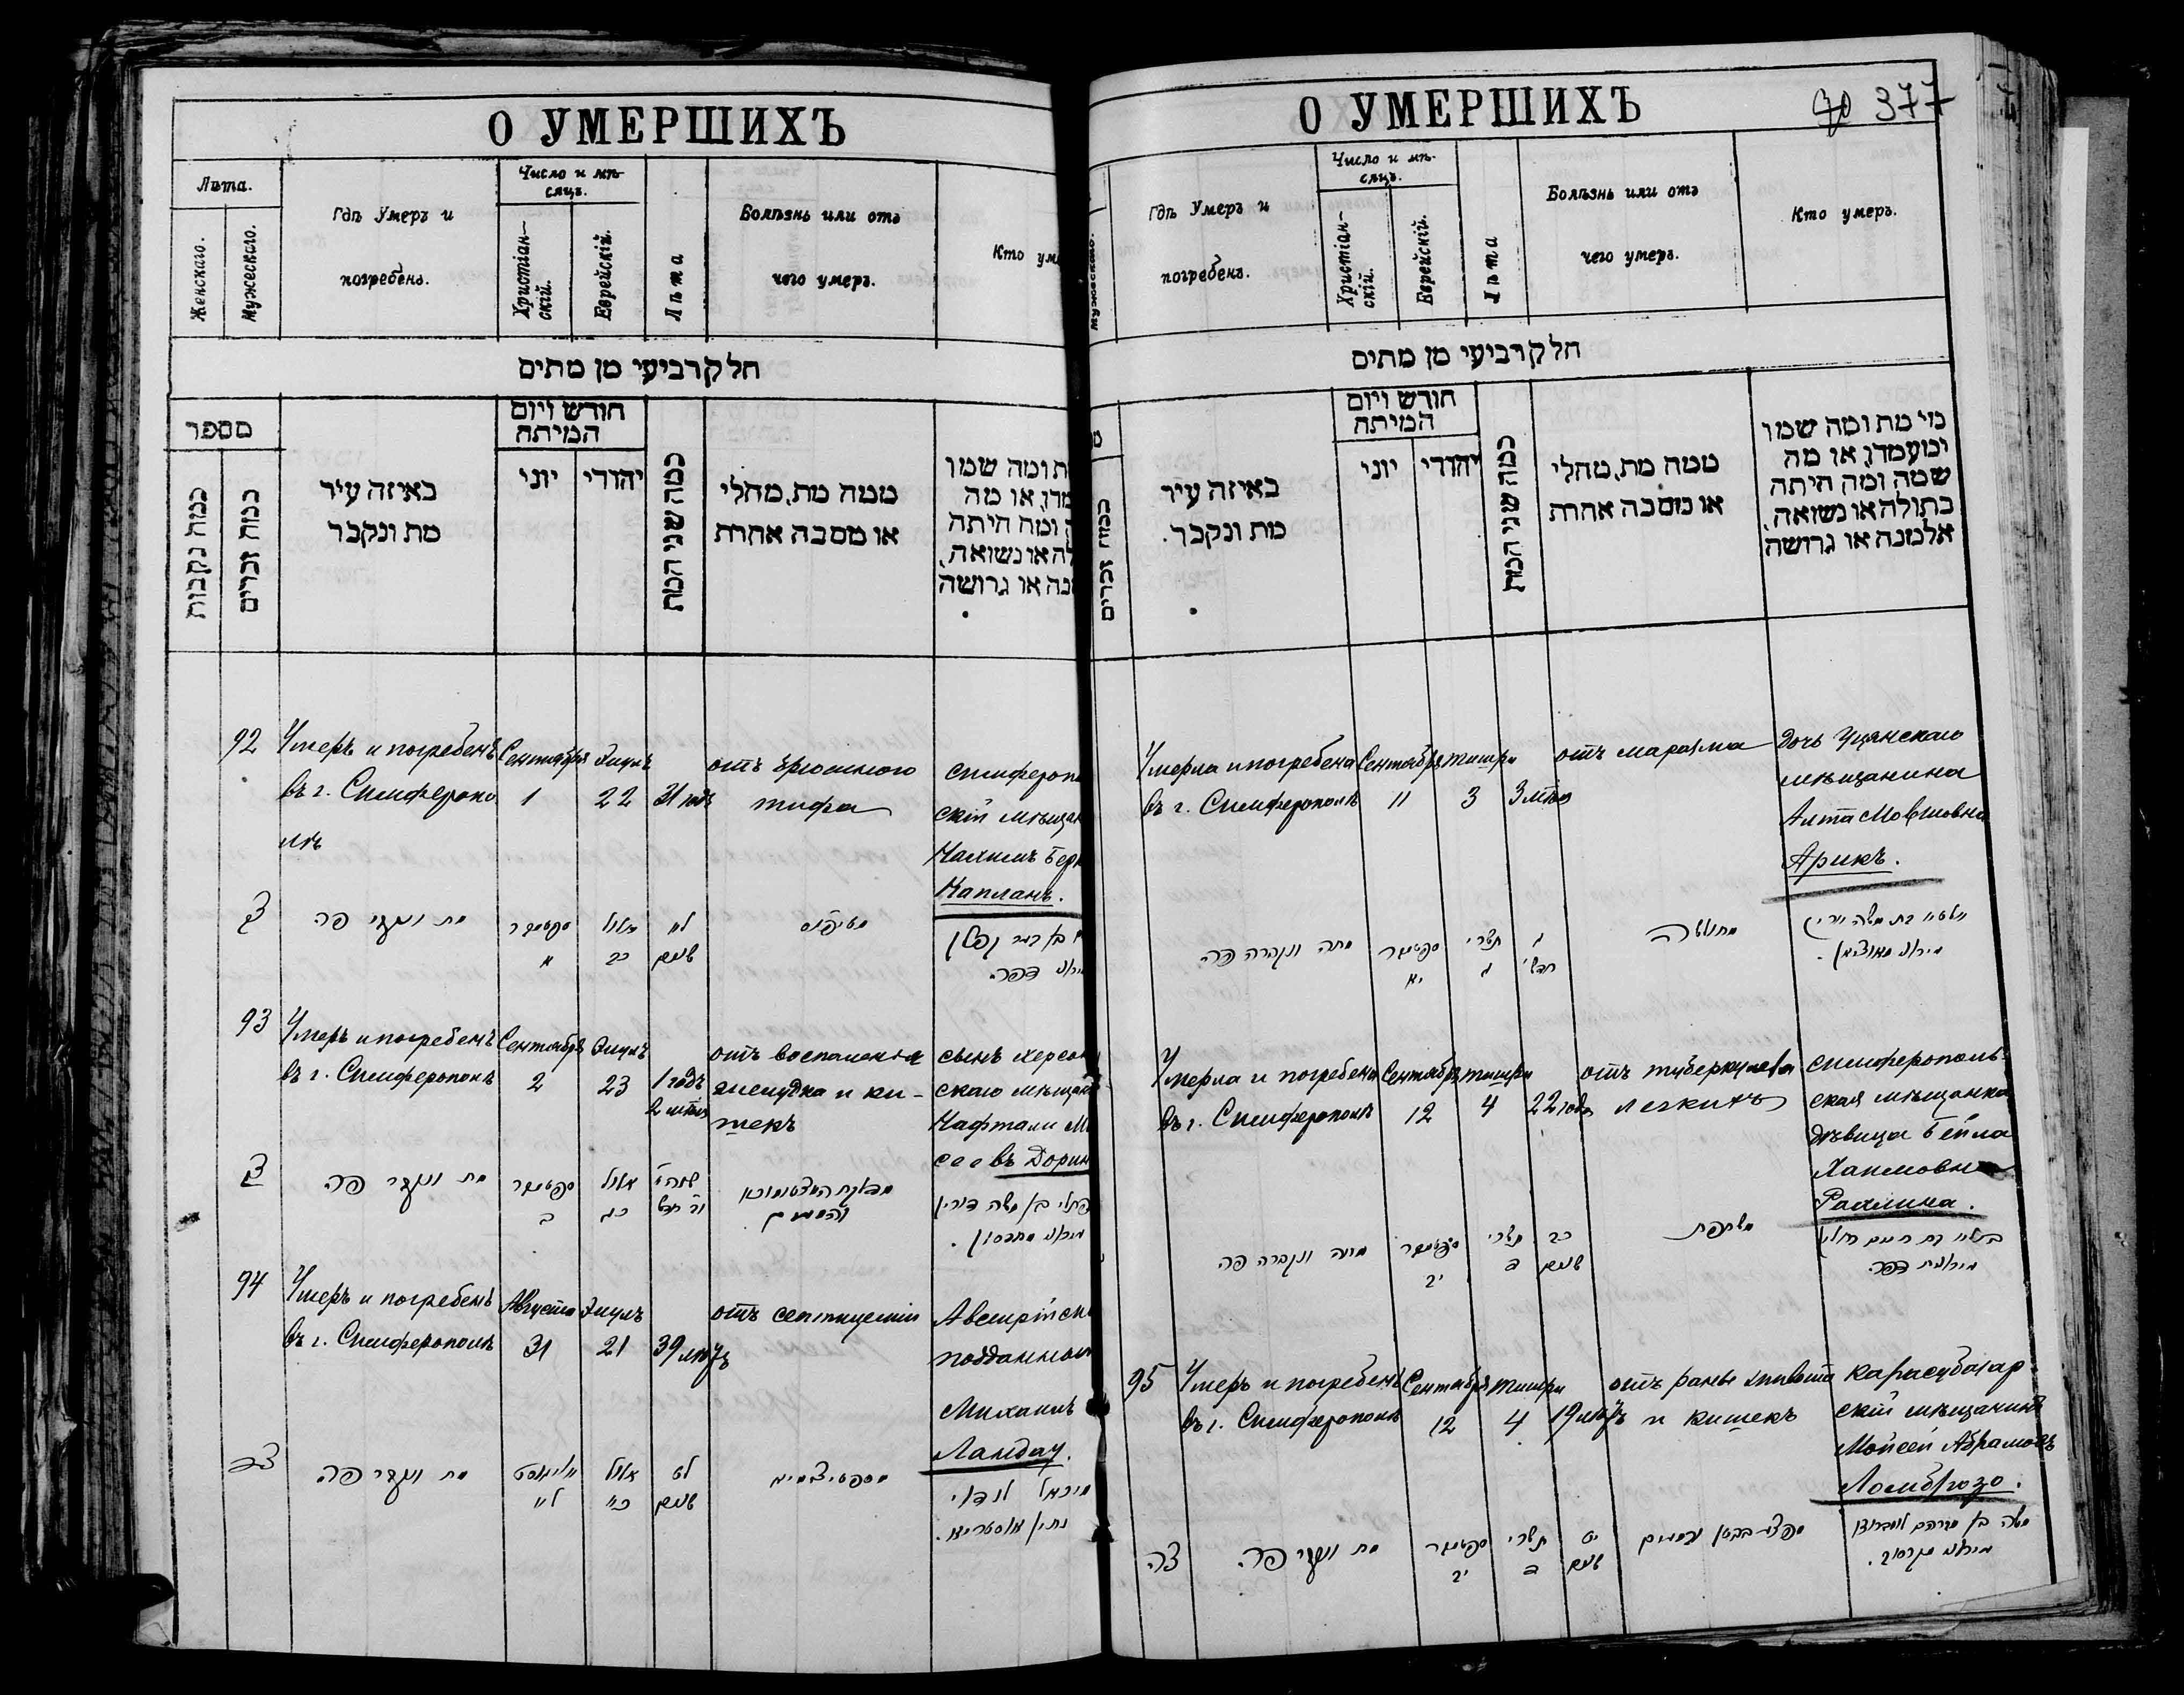 О УМЕРШИХЪ
Лѣта.
Женскаго.
Мужескаго.
Гдѣ Умеръ и
погребенъ.
Число и мѣ-
сяцъ.
Христіан-
скій.
Еврейскій.
Лѣта
Болѣзнь или отъ
чего умеръ.
Кто ум
חלק רביעי מן מתים
מספר
כמה נקבות
כמה זכרים
באיזה עיר
מת ונקבר
חודש ויום
המיתה
יוני
יהודי
כמה שני המת
ממה מת, מחלי
או מסבה אחרת
ת ומה שמו
או מה
ומה היתה
לה או נשואה,
נה או גרושה
92
Умеръ и погребенъ
въ г. Симферопо
лѣ
Сентября
1
Элулъ
22
31 годъ
отъ брюшного
тифа
симферопо
скій мѣщан
Нахимъ Берк
Капланъ.
מת ונקבר פה
ספטמבר
א
אלול
כב
לא
שנים
93
Умеръ и погребенъ
въ г. Симферополѣ
Сентября
2
Элулъ
23
1 годъ
2 мѣсяц
отъ воспаленія
желудка и ки-
шекъ
сынъ херсон
скаго мѣщан
Нафтали М
сеевъ Дорин
מת ונקבר פה
ספטמבר
ב
אלול
כג
משה דורין
94
Умеръ и погребенъ
въ г. Симферополѣ
Августа
31
Элулъ
21
39 лѣтъ
отъ септицеміи
Австрійск
подданный
Михаилъ
Ландау.
מת ונקבר פה
לא
אלול
כא
לט
שנים
מיכאל לנדוי
נתין אוסטריא.
О УМЕРШИХЪ
377
Мужескаго.
Гдѣ Умеръ и
погребенъ.
Число и мѣ-
сяцъ.
Христіан-
скій.
Еврейскій.
Лѣта
Болѣзнь или отъ
чего умеръ.
Кто умеръ.
חלק רביעי מן מתים
כמה זכרים
באיזה עיר
מת ונקבר.
חודש ויום
המיתה
יוני
יהודי
כמה שני המת
ממה מת, מחלי
או מסבה אחרת
מי מת ומה שמו
ומעמדו, או מה
שמה ומה היתה
בתולה או נשואה,
אלמנה או גרושה
Умерла и погребена
въ г. Симферополѣ
Сентября
11
Тишри
3
3 мѣс
отъ маразма
дочь Уцянскаго
мѣщанина
Алта Мовшовна
Арикъ.
מתה ונקברה פה.
ספטמבר
יא
תשרי
ג
ג
חדשי
Умерла и погребена
въ г. Симферополѣ
Сентября
12
Тишри
4
22 года
отъ туберкулеза
легкихъ
симферополь-
ская мѣщанка
дѣвица Бейла
Хаимовна
Рахлина.
מתה ונקברה פה
ספטמבר
יב
תשרי
ד
כב
שנים
משחפת
95
Умеръ и погребенъ
въ г. Симферополѣ
Сентября
12
Тишри
4
19 лѣтъ
отъ раны живота
и кишекъ
карасубазар-
скій мѣщанинъ
Мойсей Абрамовъ
Ломброзо.
צה
מת ונקבר פה.
ספטמבר
יב
תשרי
ד
יט
שנים
משה בן אברהם לומברוזו